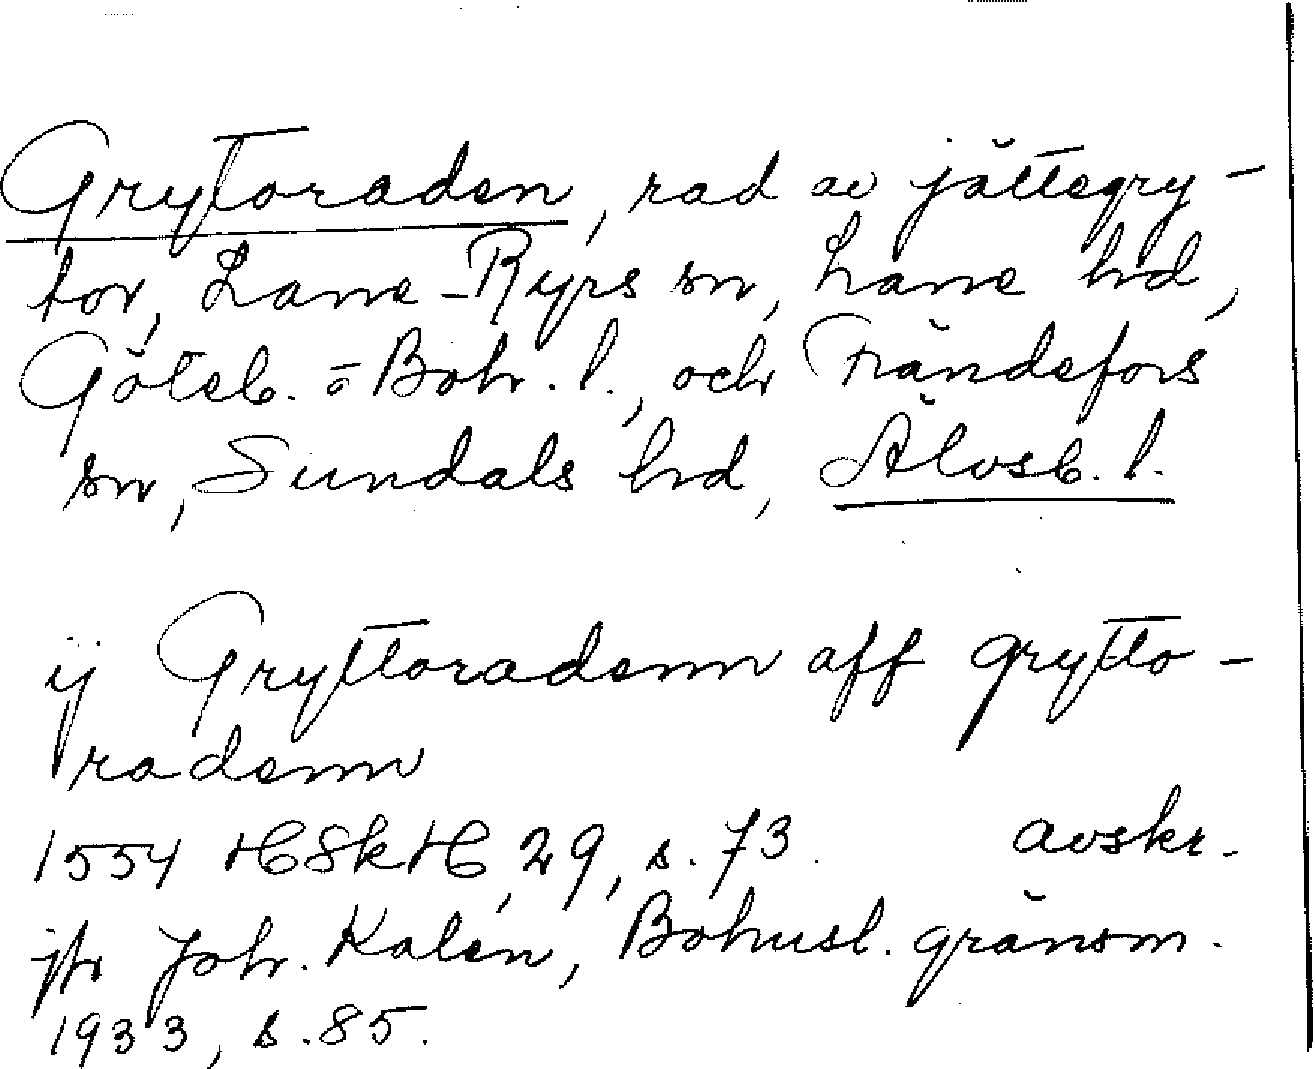 Grytoraden, rad av jättegry-
tor, Lane-Ryrs sn, Lane hd,
Göteb. o Boh. l., och Frändefors
sn, Sundals hd, Älvsb. l.
ij Gryttoradenn aff grytto-
radenn
1554 HSkH, 29, s. 73. avskr.
jfr Joh. Kalén, Bohusl. gränsm.
1933, s. 85.